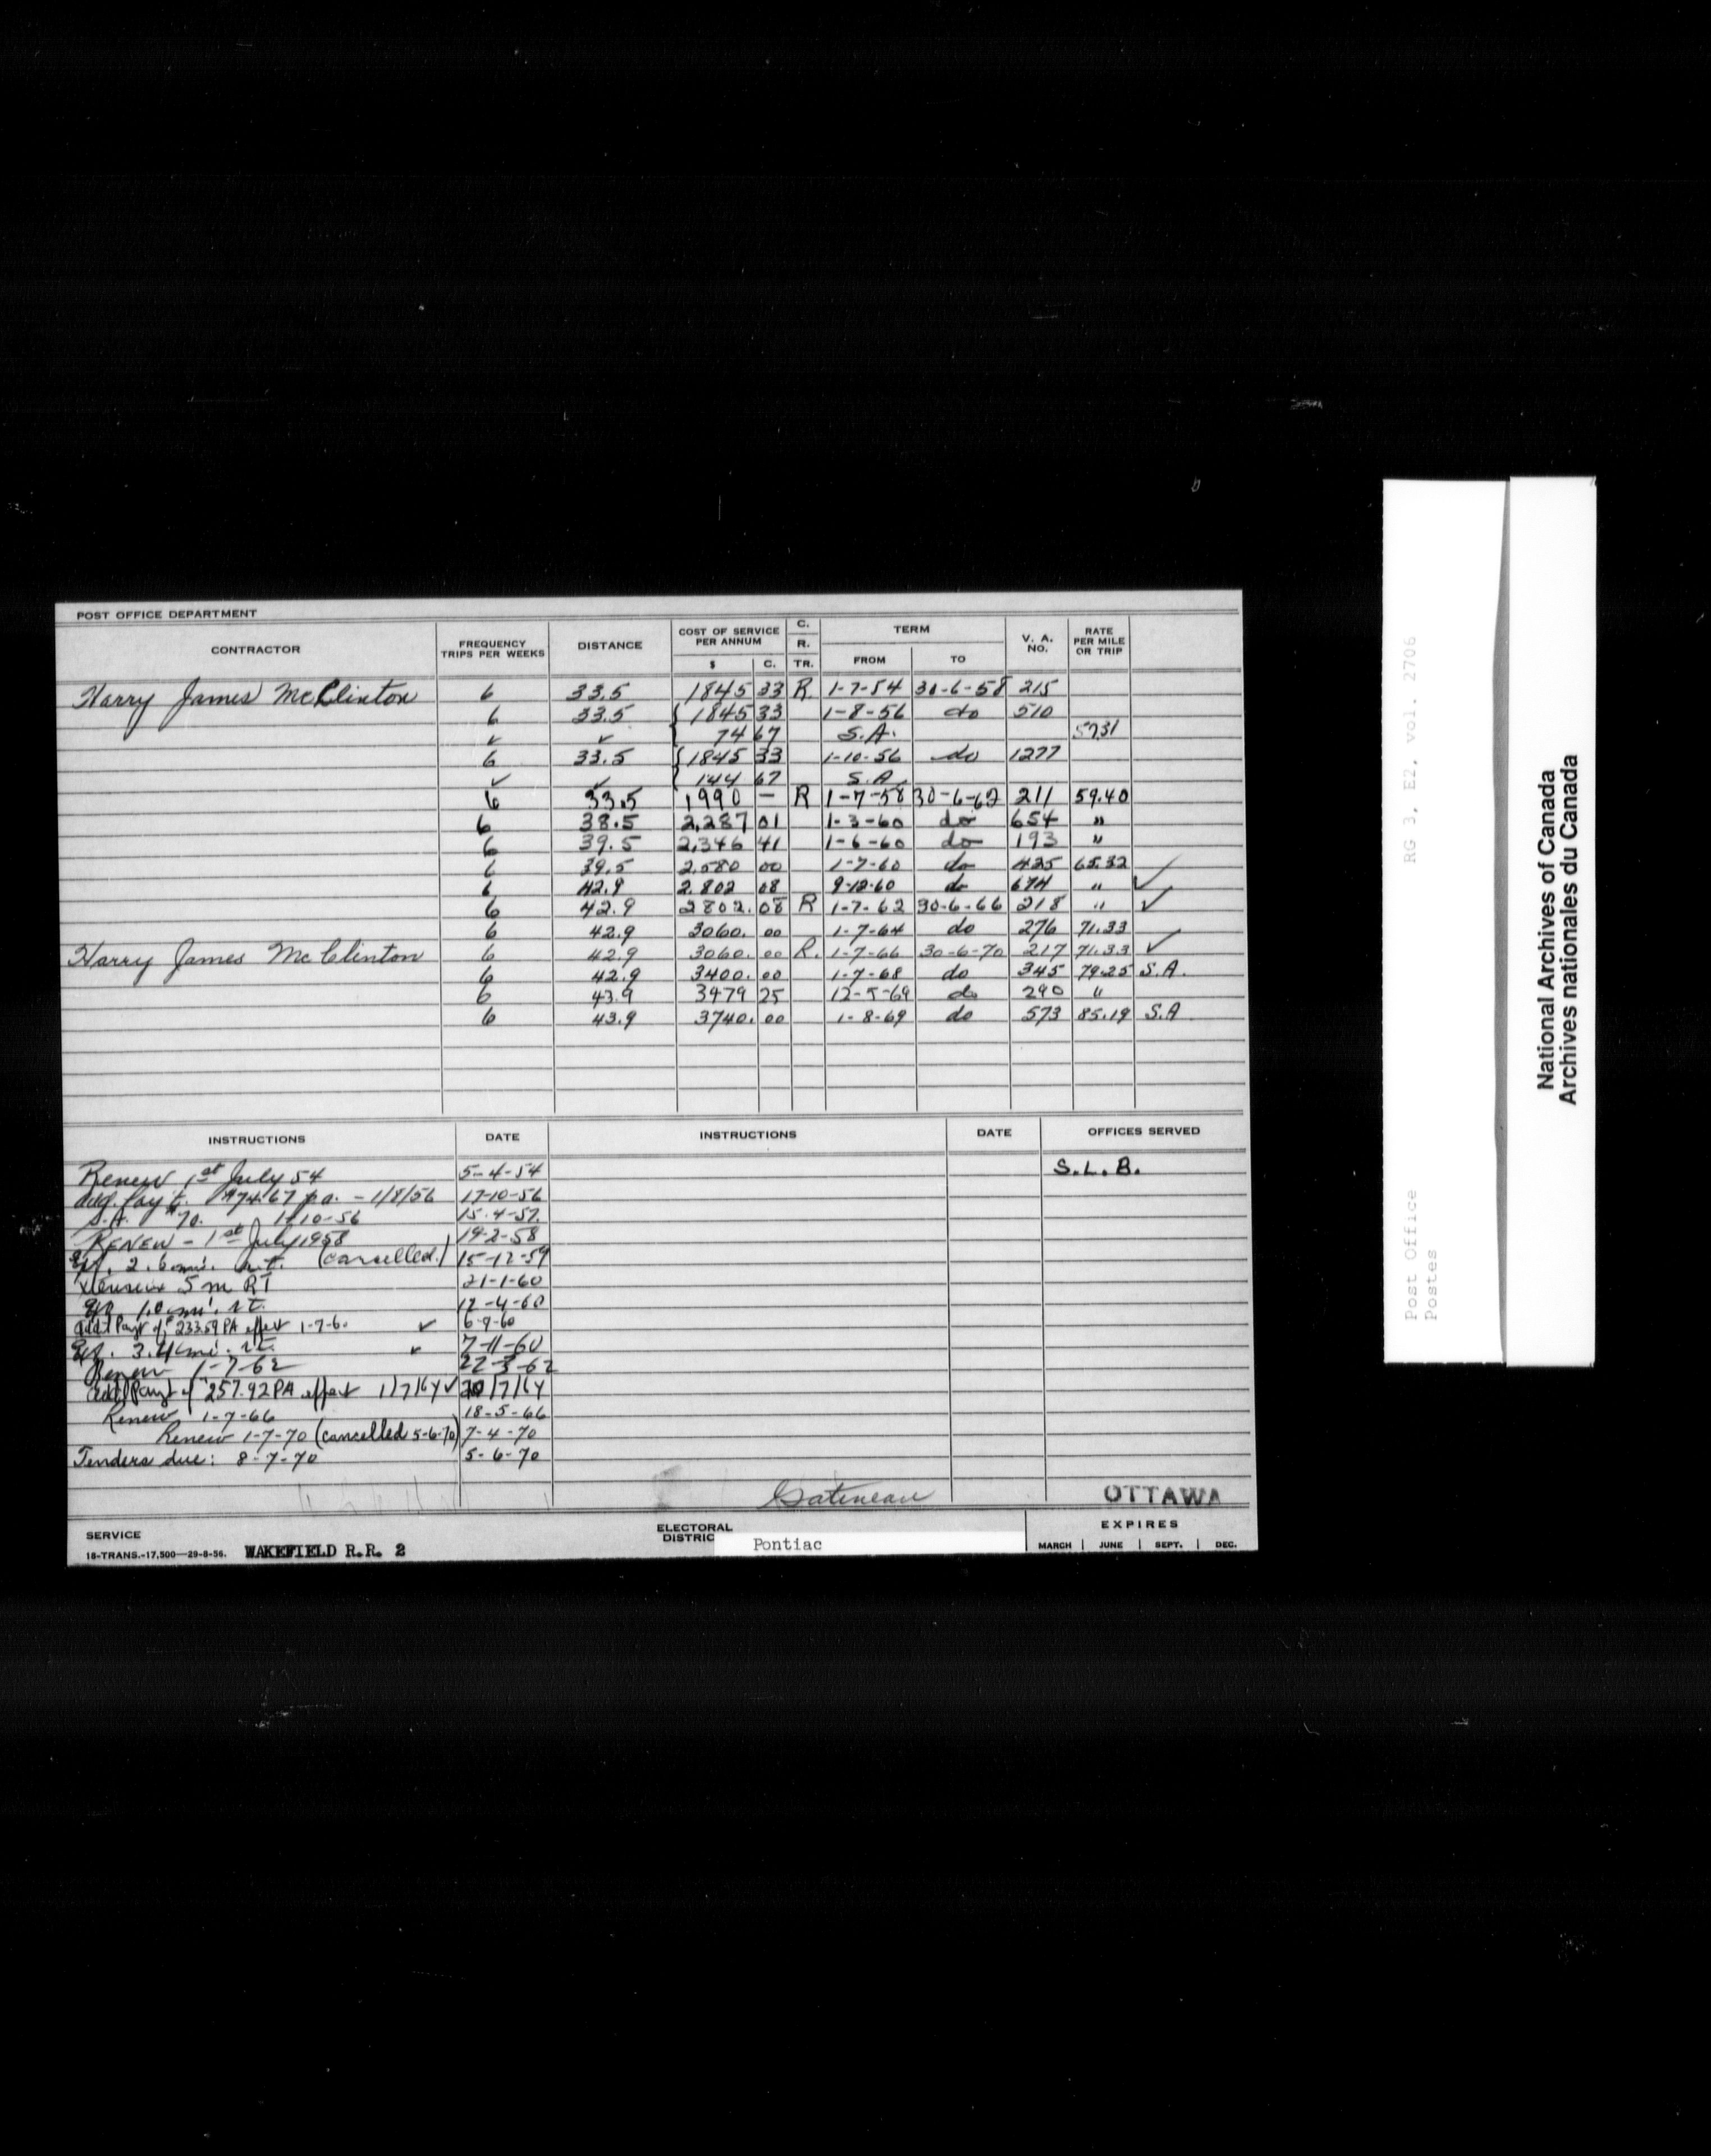 POST OFFICE DEPARTMENT
CONTRACTOR FREQUENCY TRIPS PER WEEKS DISTANCE COST OF SERVICE PER ANNUM $ C. C. R. TR. TERM FROM TO V. A. NO. RATE PER MILE OR TRIP
Harry James McClinton 6 33.5 1845 33 R. 1-7-54 30-6-58 215
6 33.5 { 1845 33 1-8-56 do 510
✓ ✓ 74 67 S.A. 57.31
6 33.5 { 1845 33 1-10-56 do 1277
✓ ✓ 144 67 S.A.
6 33.5 1990 — R 1-7-58 30-6-62 211 59.40
6 38.5 2,287 01 1-3-60 do 654 "
6 39.5 2,346 41 1-6-60 do 193 "
6 39.5 2,580 00 1-7-60 do 435 65.32
6 42.9 2.802 08 9-12-60 do 674 " ✓
6 42.9 2802. 08 R 1-7-62 30-6-66 218 " ✓
6 42.9 3060. 00 1-7-64 do 276 71.33
Harry James McClinton 6 42.9 3060. 00 R. 1-7-66 30-6-70 217 71.33 ✓
6 42.9 3400. 00 1-7-68 do 345 79.25 S.A.
6 43.9 3479 25 12-5-69 do 290 "
6 43.9 3740. 00 1-8-69 do 573 85.19 S.A
INSTRUCTIONS DATE INSTRUCTIONS DATE OFFICES SERVED
Renew 1st July 54 5-4-54 S.L.B.
add. Pay't. $74.67 p.a. - 1/8/56 17-10-56
S.A. $70. 1-10-56 15-4-57.
RENEW - 1st July 1958 19-2-58
2.6 mi. r.t. (cancelled.) 15-12-59
5 m RT 21-1-60
1.0 mi. r.t. 12-4-60
Add'l Paymt of $233.59 PA effect 1-7-60 ✓ 6-9-60
3.4 mi. r.t. ✓ 7-11-60
Renew 1-7-62 22-3-62
Add'l Paymt of $257.92 PA effect 1/7/64 ✓ 20/7/64
Renew 1-7-66 18-5-66
Renew 1-7-70 (cancelled 5-6-70) 7-4-70
Tenders due: 8-7-70 5-6-70
Gatineau OTTAWA
SERVICE WAKEFIELD R.R. 2 ELECTORAL DISTRIC Pontiac EXPIRES
18-TRANS.-17,500—29-8-56. MARCH | JUNE | SEPT. | DEC.
RG 3, E2, vol. 2706
Post Office
Postes
National Archives of Canada
Archives nationales du Canada